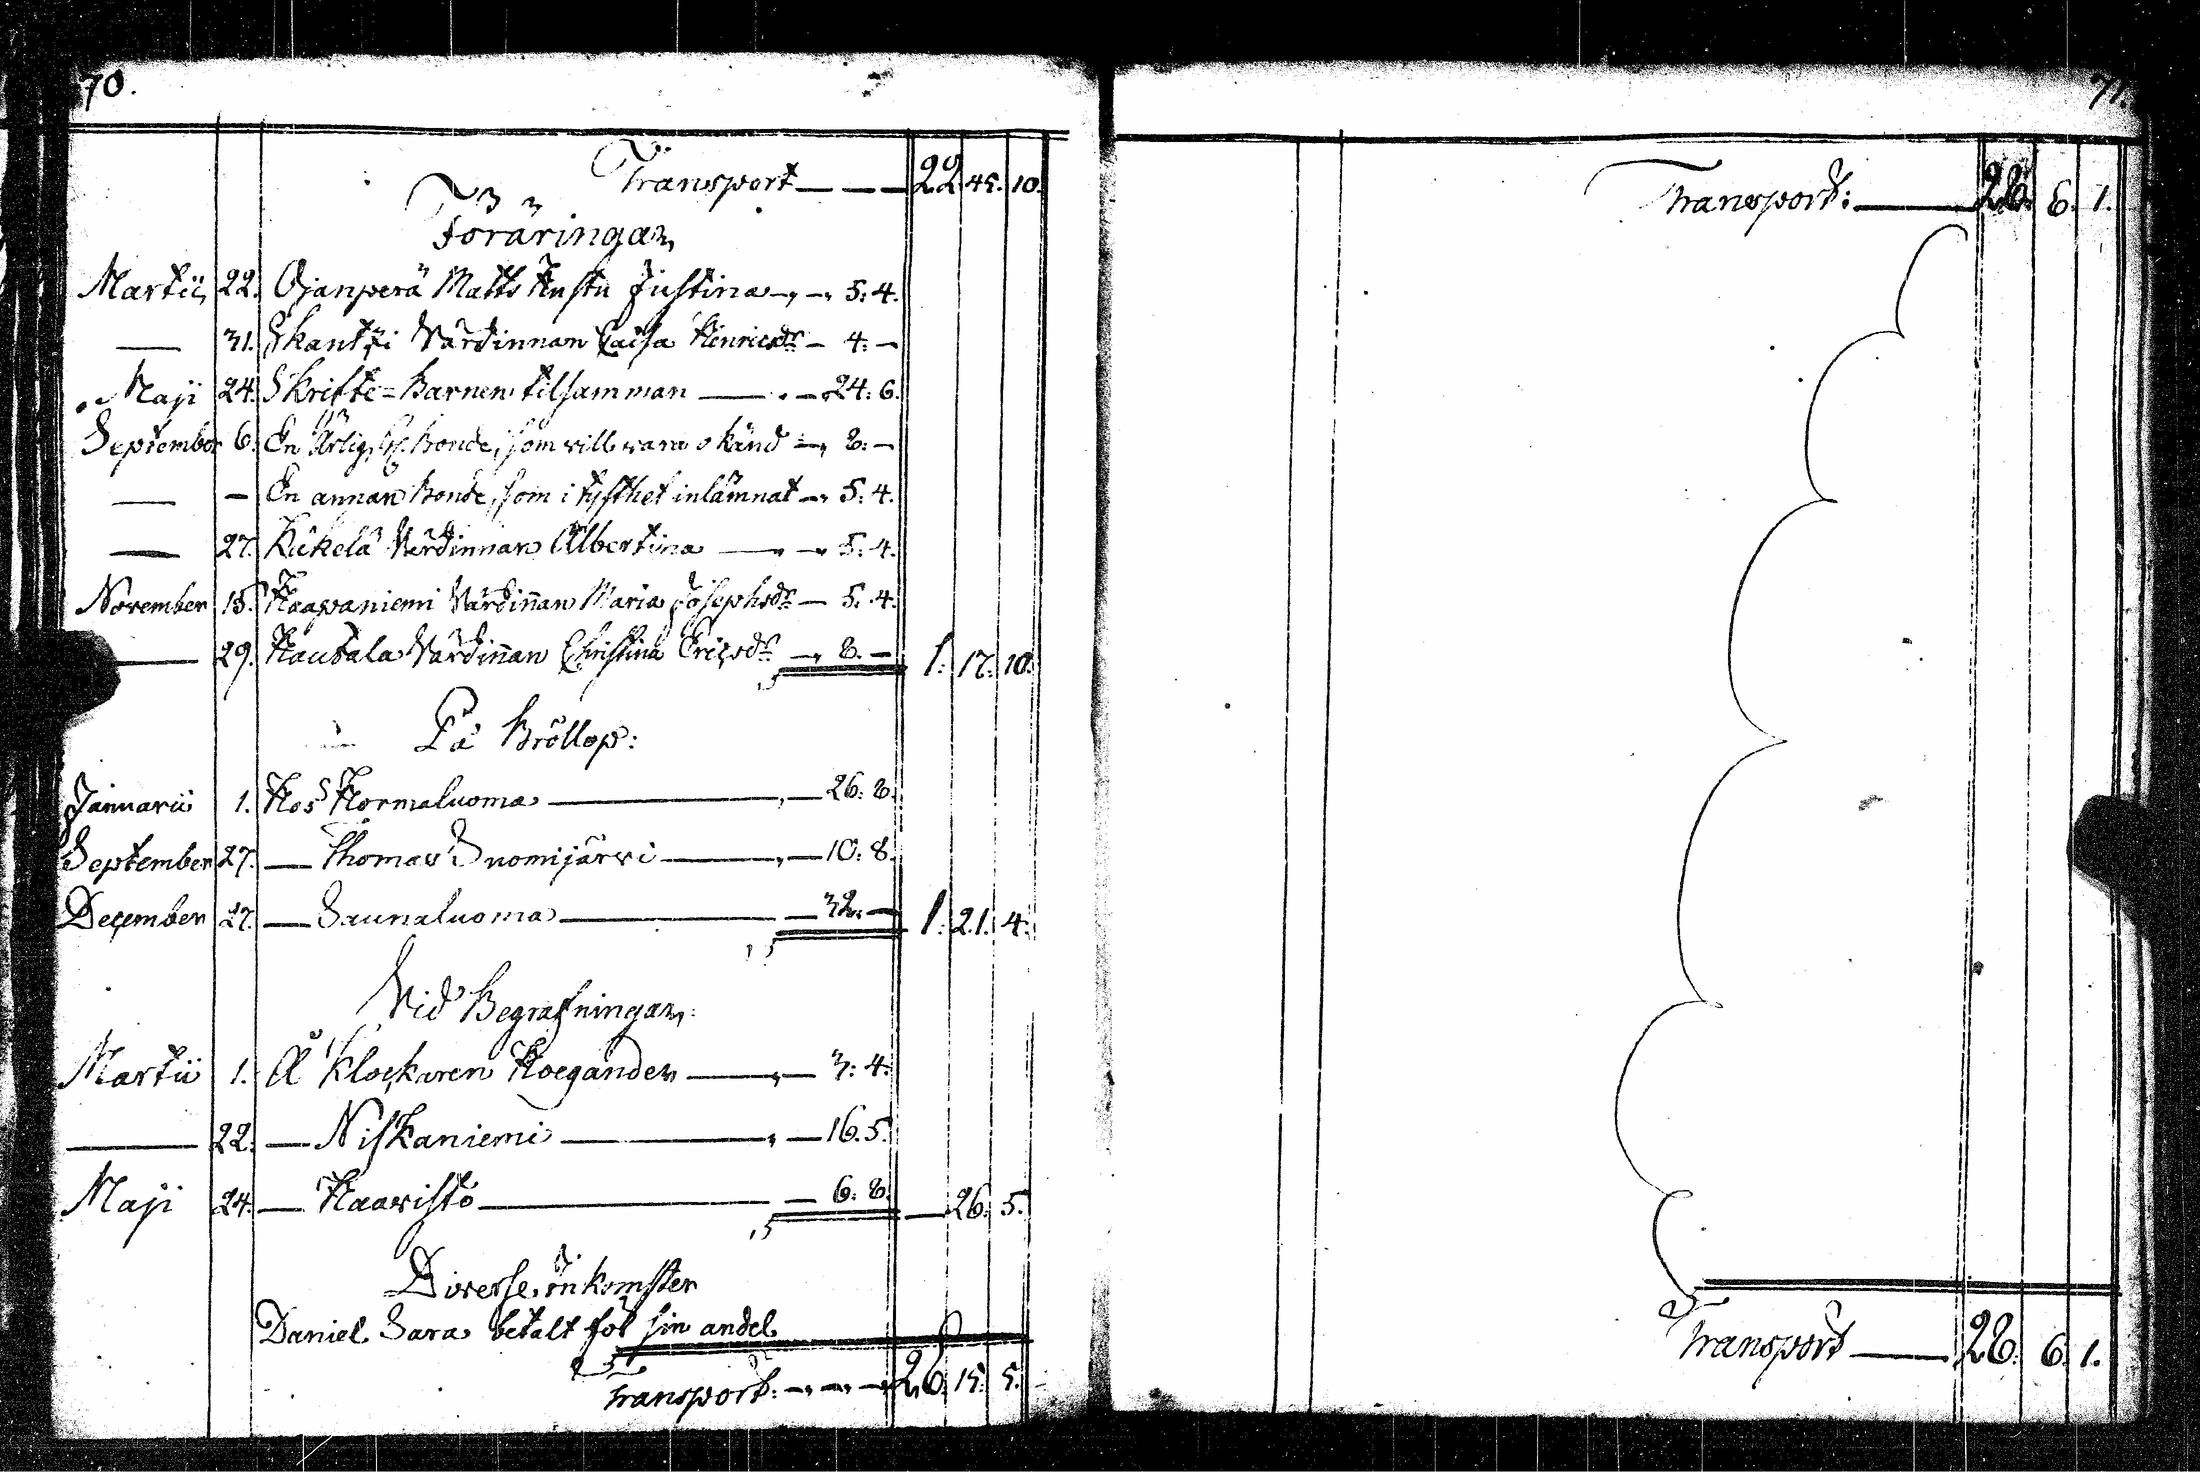 70.
Transport — — — 22. 45. 10.
Föräringar
Martii 22. Ojanperä Matts Hustu Justina —,, —,, 5: 4.
— 31. Skantzi Värdinnan Caisa Henricsdr — 4: —
Maji 24. Skrifte=Barnen tilsamman — . — 24: 6.
September 6. En Ärlig Bonde, som vill vara okänd —,, 8: —
— — En annan Bonde, som i tysthet inlämnat —,, 5: 4.
— 27. Kickelä Värdinnan Albertina —,, —,, 5: 4.
November 15. Haapaniemi Värdinnan Maria Josephsdr — 5. 4.
— 29. Hautala Värdinnan Christina Ericsdr —,, 8. — 1. 17. 10.
På Bröllop:
Januarii 1. Hos Hormaluoma — 26: 8.
September 27. — Thomas Suomijärvi — 10: 8.
December 27. — Saunaluoma — 32. — 1. 21. 4.
Vid Begrafningar:
Martii 1. Å Klockaren Hoeganders — 3: 4.
— 22. — Niskaniemi — 16. 5.
Maji 24. — Haavisto — 6: 8. — 26. 5.
Diverse Inkomster
Daniel Sara betalt för sin andel
Transport: —,, —,, — 26. 15. 5.
71.
Transport: — 26. 6. 1.
Transport — 26. 6. 1.